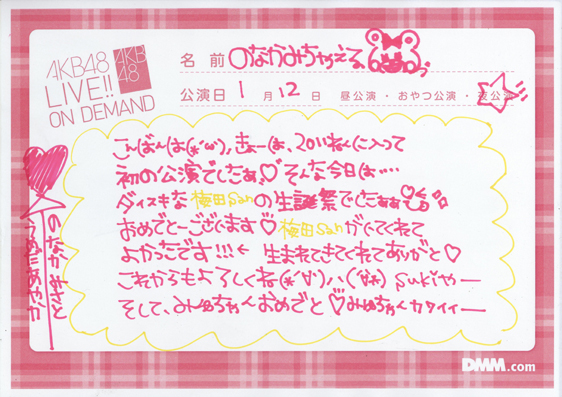 AKB48
LIVE!!
ON DEMAND
AKB
48
名 前 のなかみちゃえる
公演日 1 月 12 日 昼公演・おやつ公演・夜公演
こんばんは(*'ω'),きょーは、2011ねんに入って
初の公演でしたぁ、♡そんな今日は…
ダイスキな梅田sanの生誕祭でしたぁぁ
おめでとーございます♡梅田sanがいてくれて
よかったです!!!← 生まれてきてくれてありがと♡
これからもよろしくね(*'∀')八('∀'*) sukiやー
そして、みゆちゃんおめでと♡みゆちゃんカワイイー
のなかみさと
うめだあやか
DMM.com